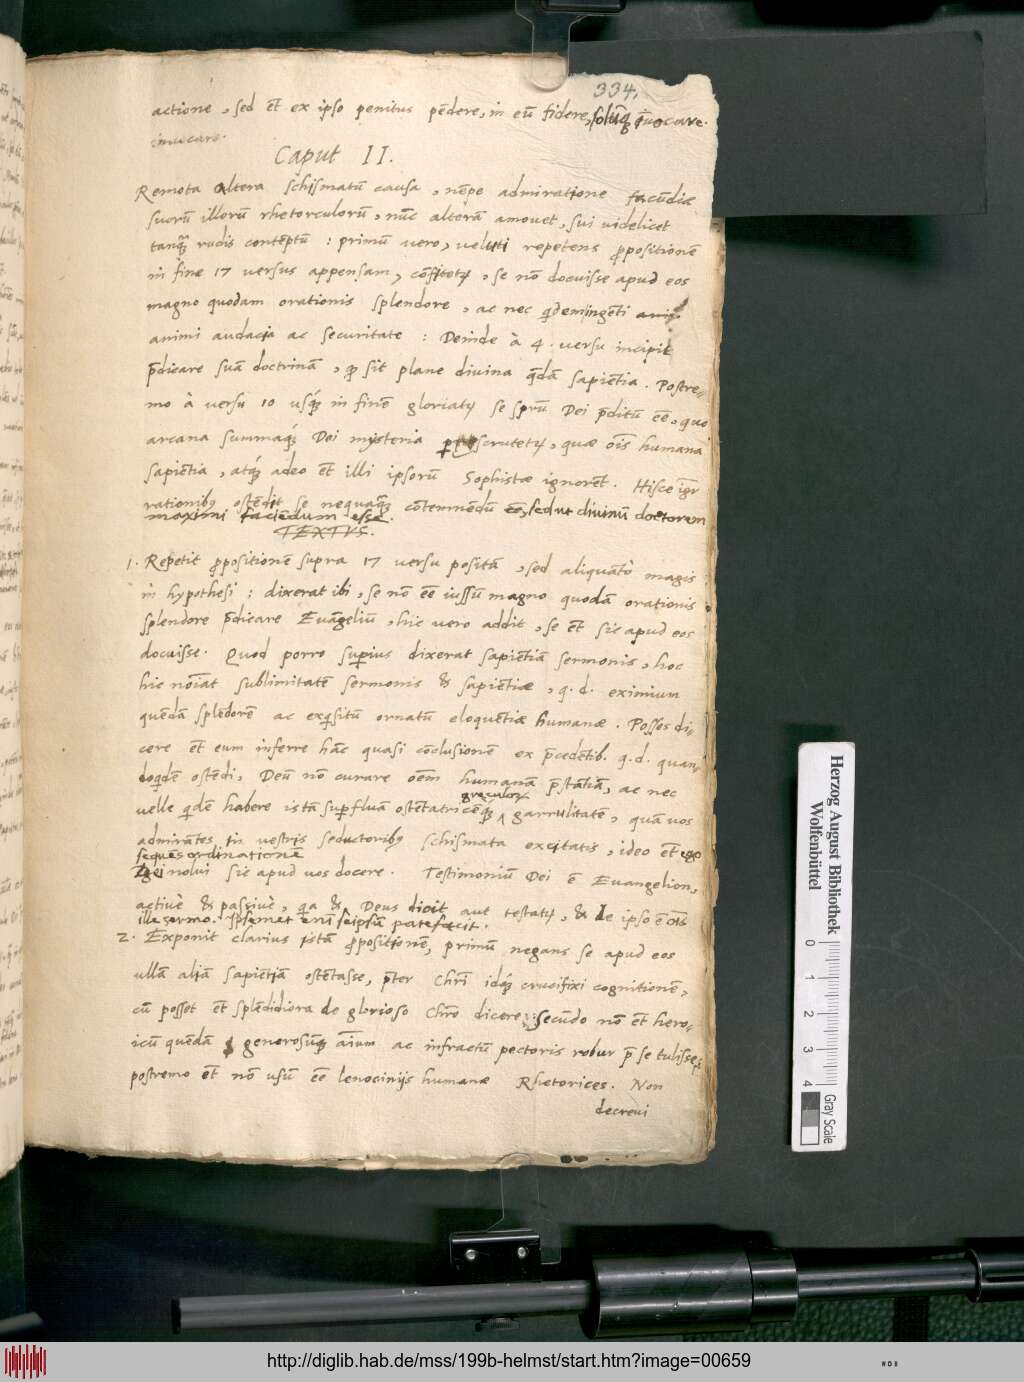 334.
actione, sed et̄ ex ipso penitus pēdere, in eū fidere, solūq̨ īuocare.
inuocare.
Caput II.
Remota altera schismatū causa, nēpe admiratione facūdiæ
suorū illorū rhetorculorū, nūc alterā amouet, sui uidelicet
tanquā rudis contēptū : primū vero, veluti repetens ꝓpositionē
in fine 17 versus appensam, cōfitetur, se nō docuisse apud eos
magno quodam orationis splendore, ac nec q̇dem ingēti
animi audacia ac securitate : Deinde à 4. versu incipit
p̄dicare suā doctrinā, ꝙ sit plane divina quædā sapiētia. Postre-
mo à versu 10 usq́ȝ in finē gloriatur se spm̄ Dei p̄ditū eē, quo
arcana summaq́ȝ Dei mysteria perscrutetur, quæ oīs humana
sapiētia, atq́ȝ adeo et̄ illi ipsorū Sophistæ ignorēt. Hisce igr̄
rationibus ostēdit se nequaquā cōtemnēdū eē, sed ut divinū doctorem
maximi faciēdum esse.
TEXTVS.
1. Repetit ꝓpositionē supra 17 versu positā, sed aliquāto magis
in hypothesi : dixerat ibi, se nō eē iussū magno quodā orationis
splendore p̄dicare Euāgeliū, hic vero addit, se et̄ sic apud eos
docuisse. Quod porro superius dixerat sapiētiā sermonis, hoc
hic noīat sublimitatē sermonis & sapiētiæ, q. d. eximium
quēdā splēdorē ac exq̇situ ornatū eloquētiæ humanæ. Posses di-
cere et̄ eum inferre hāc quasi cōclusionē ex p̄cedētib. q. d. quan-
doq̇dē ostēdi, Deū nō curare oēm humanā p̄stātiā, ac nec
græculorum
uelle q̇dē habere istā superfluā ostētatricēq́ȝ garrulitatē, quā vos
admirātes in vestris seductoribus schismata excitatis, ideo et̄ ego
sequēs ordinationē
Dei nolui sic apud vos docere. Testimoniū Dei ē Evangelion,
actiuè & passiuè, quia & Deus dicit aut testatur, & de ipso ē oīs
ille sermo. Ipsemet enī seipsū patefacit.
2. Exponit clarius istā ꝓpositionē, primū negans se apud eos
ullā aliā sapiētiā ostētasse, p̄ter Chr̄i idq́ȝ crucifixi cognitionē,
cū posset et̄ splēdidiora de glorioso Chr̄o dicere: secūdo nō et̄ hero-
icū quēdā generosūq̨ aīum ac infractū pectoris robur p̄ se tulisse:
postremo et̄ nō usū eē lenociniis humanæ Rhetorices. Non
decrevi
Herzog August Bibliothek
Wolfenbüttel
0 1 2 3 4
Gray Scale
http://diglib.hab.de/mss/199b-helmst/start.htm?image=00659
WDB